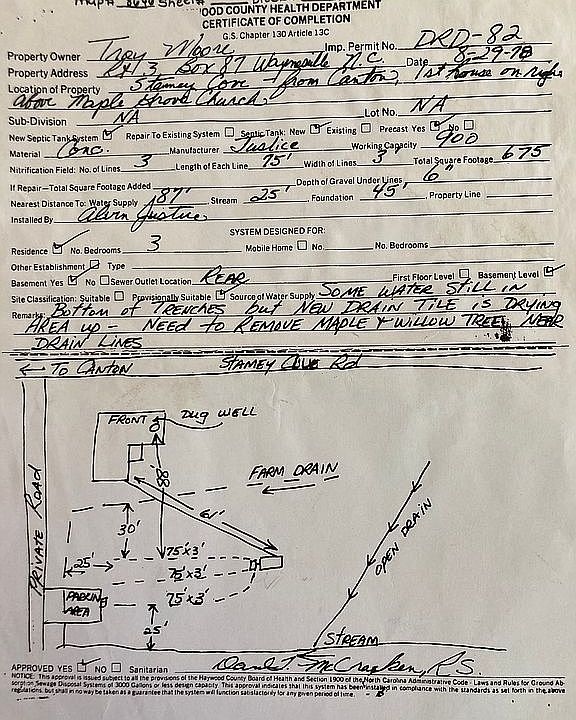 Map# 8646 Sheet#
OOD COUNTY HEALTH DEPARTMENT
CERTIFICATE OF COMPLETION
G.S. Chapter 130 Article 13C
Imp. Permit No. DRD-82
Property Owner Troy Moore Date 8-29-78
Property Address Rt 3 Box 87 Waynesville N.C.
Location of Property Stamey Cove - from Canton, 1st house on right
above Maple Grove Church.
Sub-Division NA Lot No. NA
New Septic Tank System ☑ Repair To Existing System ☐ Septic Tank: New ☑ Existing ☐ Precast Yes ☑ No ☐
Material Conc. Manufacturer Justice Working Capacity 900
Nitrification Field: No. of Lines 3 Length of Each Line 75' Width of Lines 3' Total Square Footage 675
If Repair—Total Square Footage Added Depth of Gravel Under Lines 6"
Nearest Distance To: Water Supply 87' Stream 25' Foundation 45' Property Line
Installed By Alvin Justice
SYSTEM DESIGNED FOR:
Residence ☑ No. Bedrooms 3 Mobile Home ☐ No. No. Bedrooms
Other Establishment ☐ Type
Basement Yes ☑ No ☐ Sewer Outlet Location REAR First Floor Level ☐ Basement Level ☑
Site Classification: Suitable ☐ Provisionally Suitable ☑ Source of Water Supply
Remarks: SOME WATER STILL IN
BOTTOM OF TRENCHES BUT NEW DRAIN TILE IS DRYING
AREA UP - NEED TO REMOVE MAPLE & WILLOW TREE NEAR
DRAIN LINES
← TO CANTON STAMEY COVE Rd
FRONT DUG WELL
88'
FARM DRAIN
61'
30'
PRIVATE ROAD
25'
75'x3'
75'x3'
75'x3'
OPEN DRAIN
PARKING
AREA
25'
STREAM
APPROVED YES ☑ NO ☐ Sanitarian David T. McCracken, R.S.
NOTICE: This approval is issued subject to all the provisions of the Haywood County Board of Health and Section 1900 of the North Carolina Administrative Code - Laws and Rules for Ground Ab-
sorption Sewage Disposal Systems of 3000 Gallons or less design capacity. This approval indicates that this system has been installed in compliance with the standards as set forth in the above
regulations, but shall in no way be taken as a guarantee that the system will function satisfactorily for any given period of time.